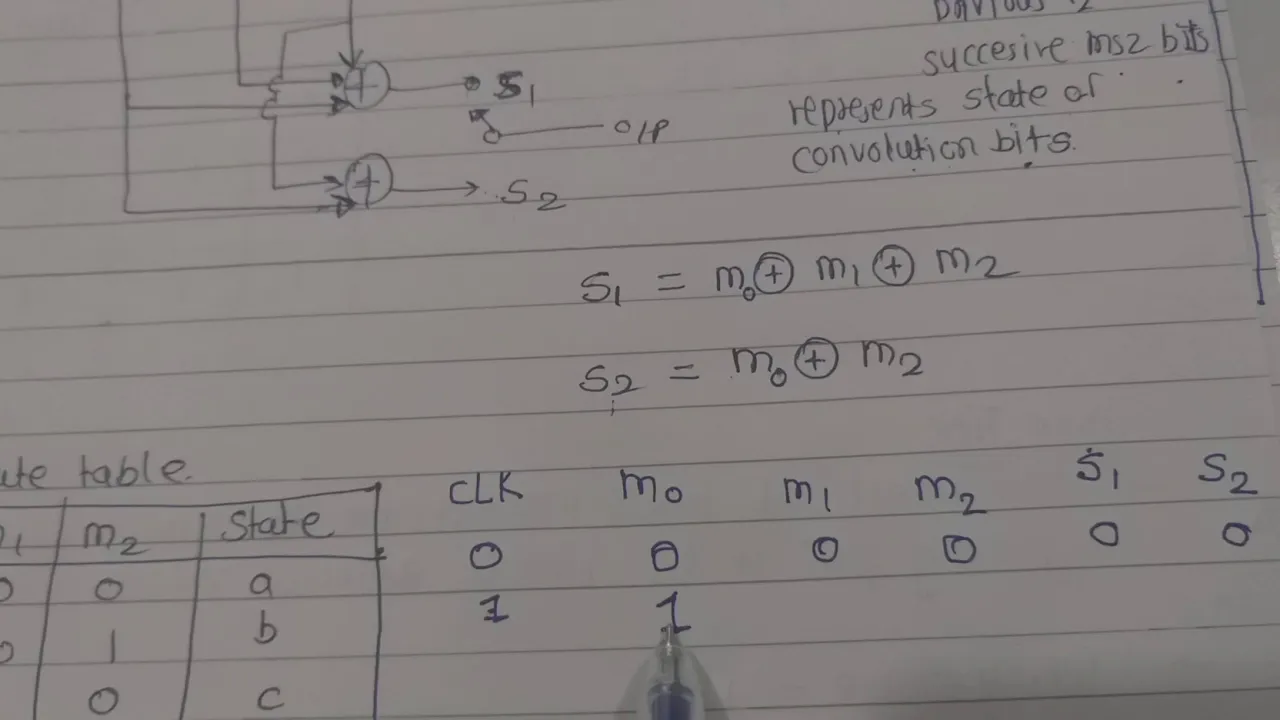 succesive ms2 bits
represents state of
convolution bits.
S1
O/P
S2
S1 = m0 ⊕ m1 ⊕ m2
S2 = m0 ⊕ m2
table.
m2 State
0 a
1 b
0 c
CLK m0 m1 m2 S1 S2
0 0 0 0 0 0
1 1